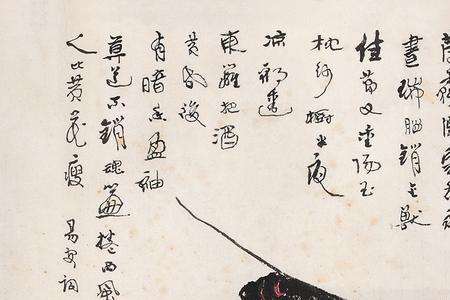 晝瑞腦銷金獸
佳節又重陽玉
枕紗橱半夜
涼初透
東籬把酒
黃昏後
有暗香盈袖
莫道不銷魂簾捲西風
人比黃花瘦
易安詞